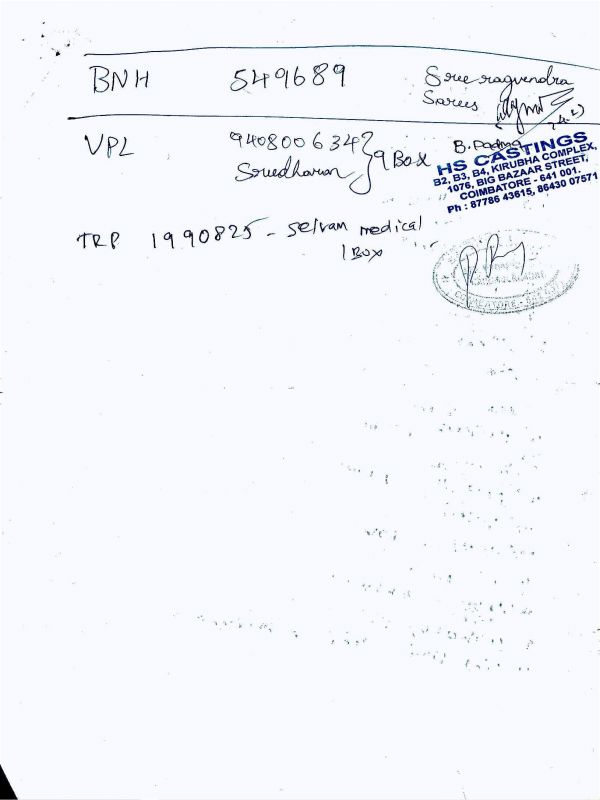 BNH 549689 Sree ragvendra
Sarees
VPL 9408006347 Sreedharan } 9 Box B. Padma
HS CASTINGS
B2, B3, B4, KIRUBHA COMPLEX,
1076, BIG BAZAAR STREET,
COIMBATORE - 641 001.
Ph : 87786 43615, 86430 07571
TRP 1990825 - Selvam medical
1 Box
COIMBATORE